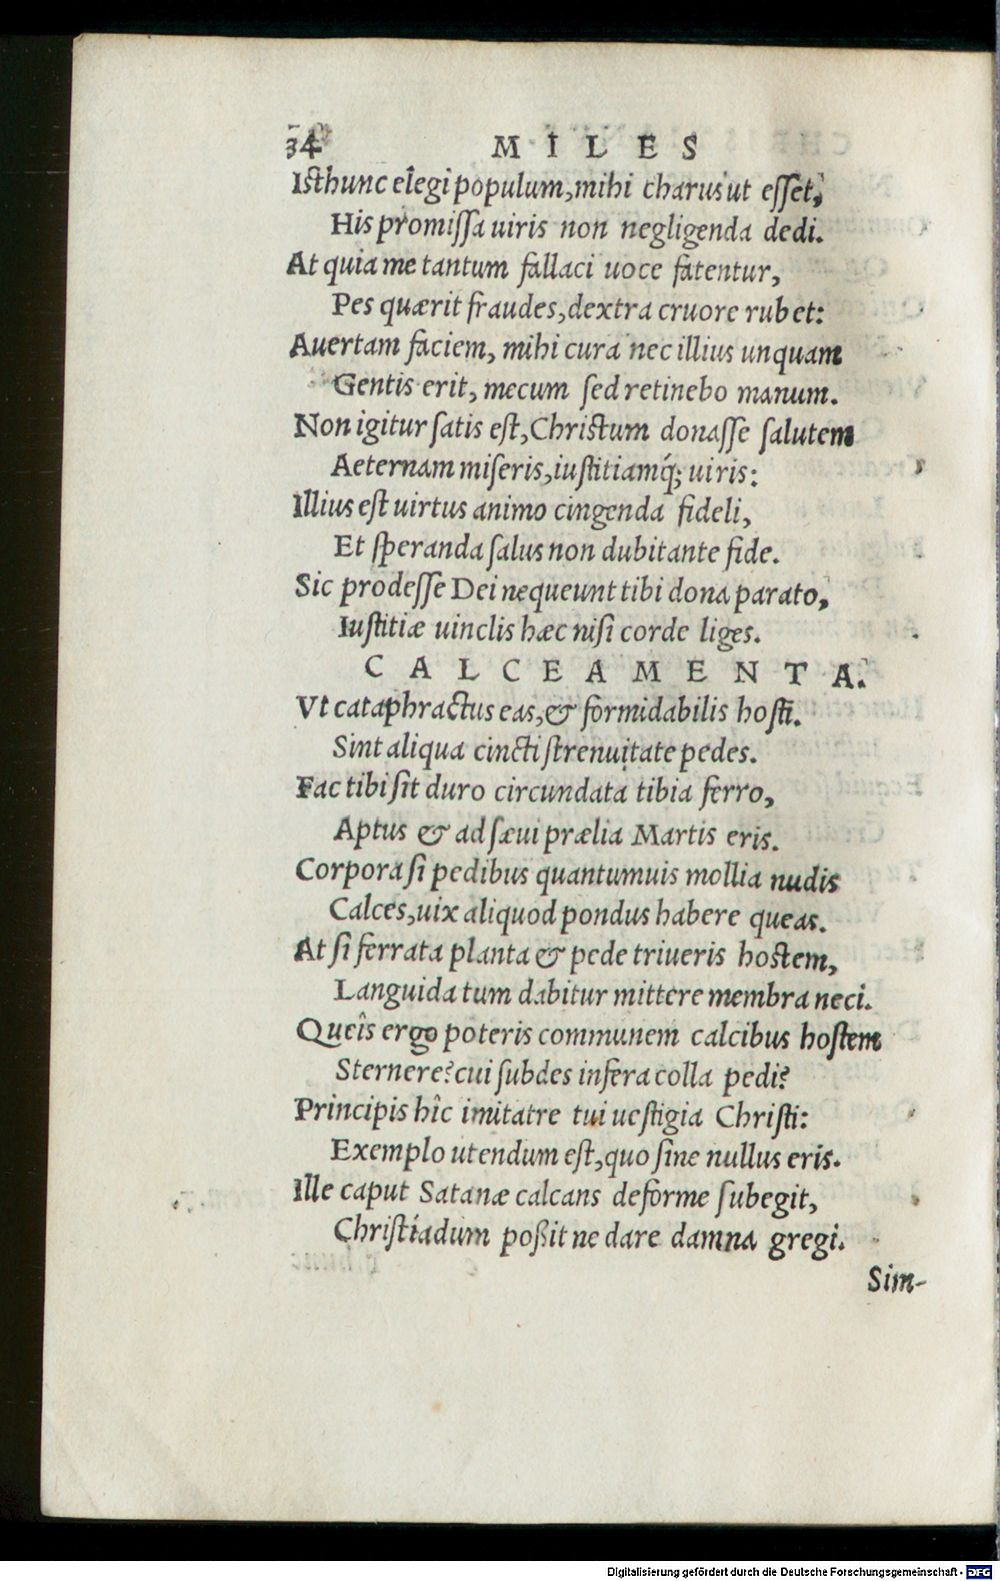 34 MILES
Isthunc elegi populum, mihi charus ut esset,
His promissa uiris non negligenda dedi.
At quia me tantum fallaci uoce fatentur,
Pes quærit fraudes, dextra cruore rubet:
Auertam faciem, mihi cura nec illius unquam
Gentis erit, mecum sed retinebo manum.
Non igitur satis est, Christum donasse salutem
Aeternam miseris, iustitiamq́; uiris:
Illius est uirtus animo cingenda fideli,
Et speranda salus non dubitante fide.
Sic prodesse Dei nequeunt tibi dona parato,
Iustitiæ uinclis hæc nisi corde liges.
CALCEAMENTA.
Vt cataphractus eas, & formidabilis hosti.
Sint aliqua cincti strenuitate pedes.
Fac tibi sit duro circundata tibia ferro,
Aptus & ad sæui prælia Martis eris.
Corpora si pedibus quantumuis mollia nudis
Calces, uix aliquod pondus habere queas.
At si ferrata planta & pede triueris hostem,
Languida tum dabitur mittere membra neci.
Queîs ergo poteris communem calcibus hostem
Sternere? cui subdes infera colla pedi?
Principis hîc imitatre tui uestigia Christi:
Exemplo utendum est, quo sine nullus eris.
Ille caput Satanæ calcans deforme subegit,
Christiadum poßit ne dare damna gregi.
Sim-
Digitalisierung gefördert durch die Deutsche Forschungsgemeinschaft - DFG